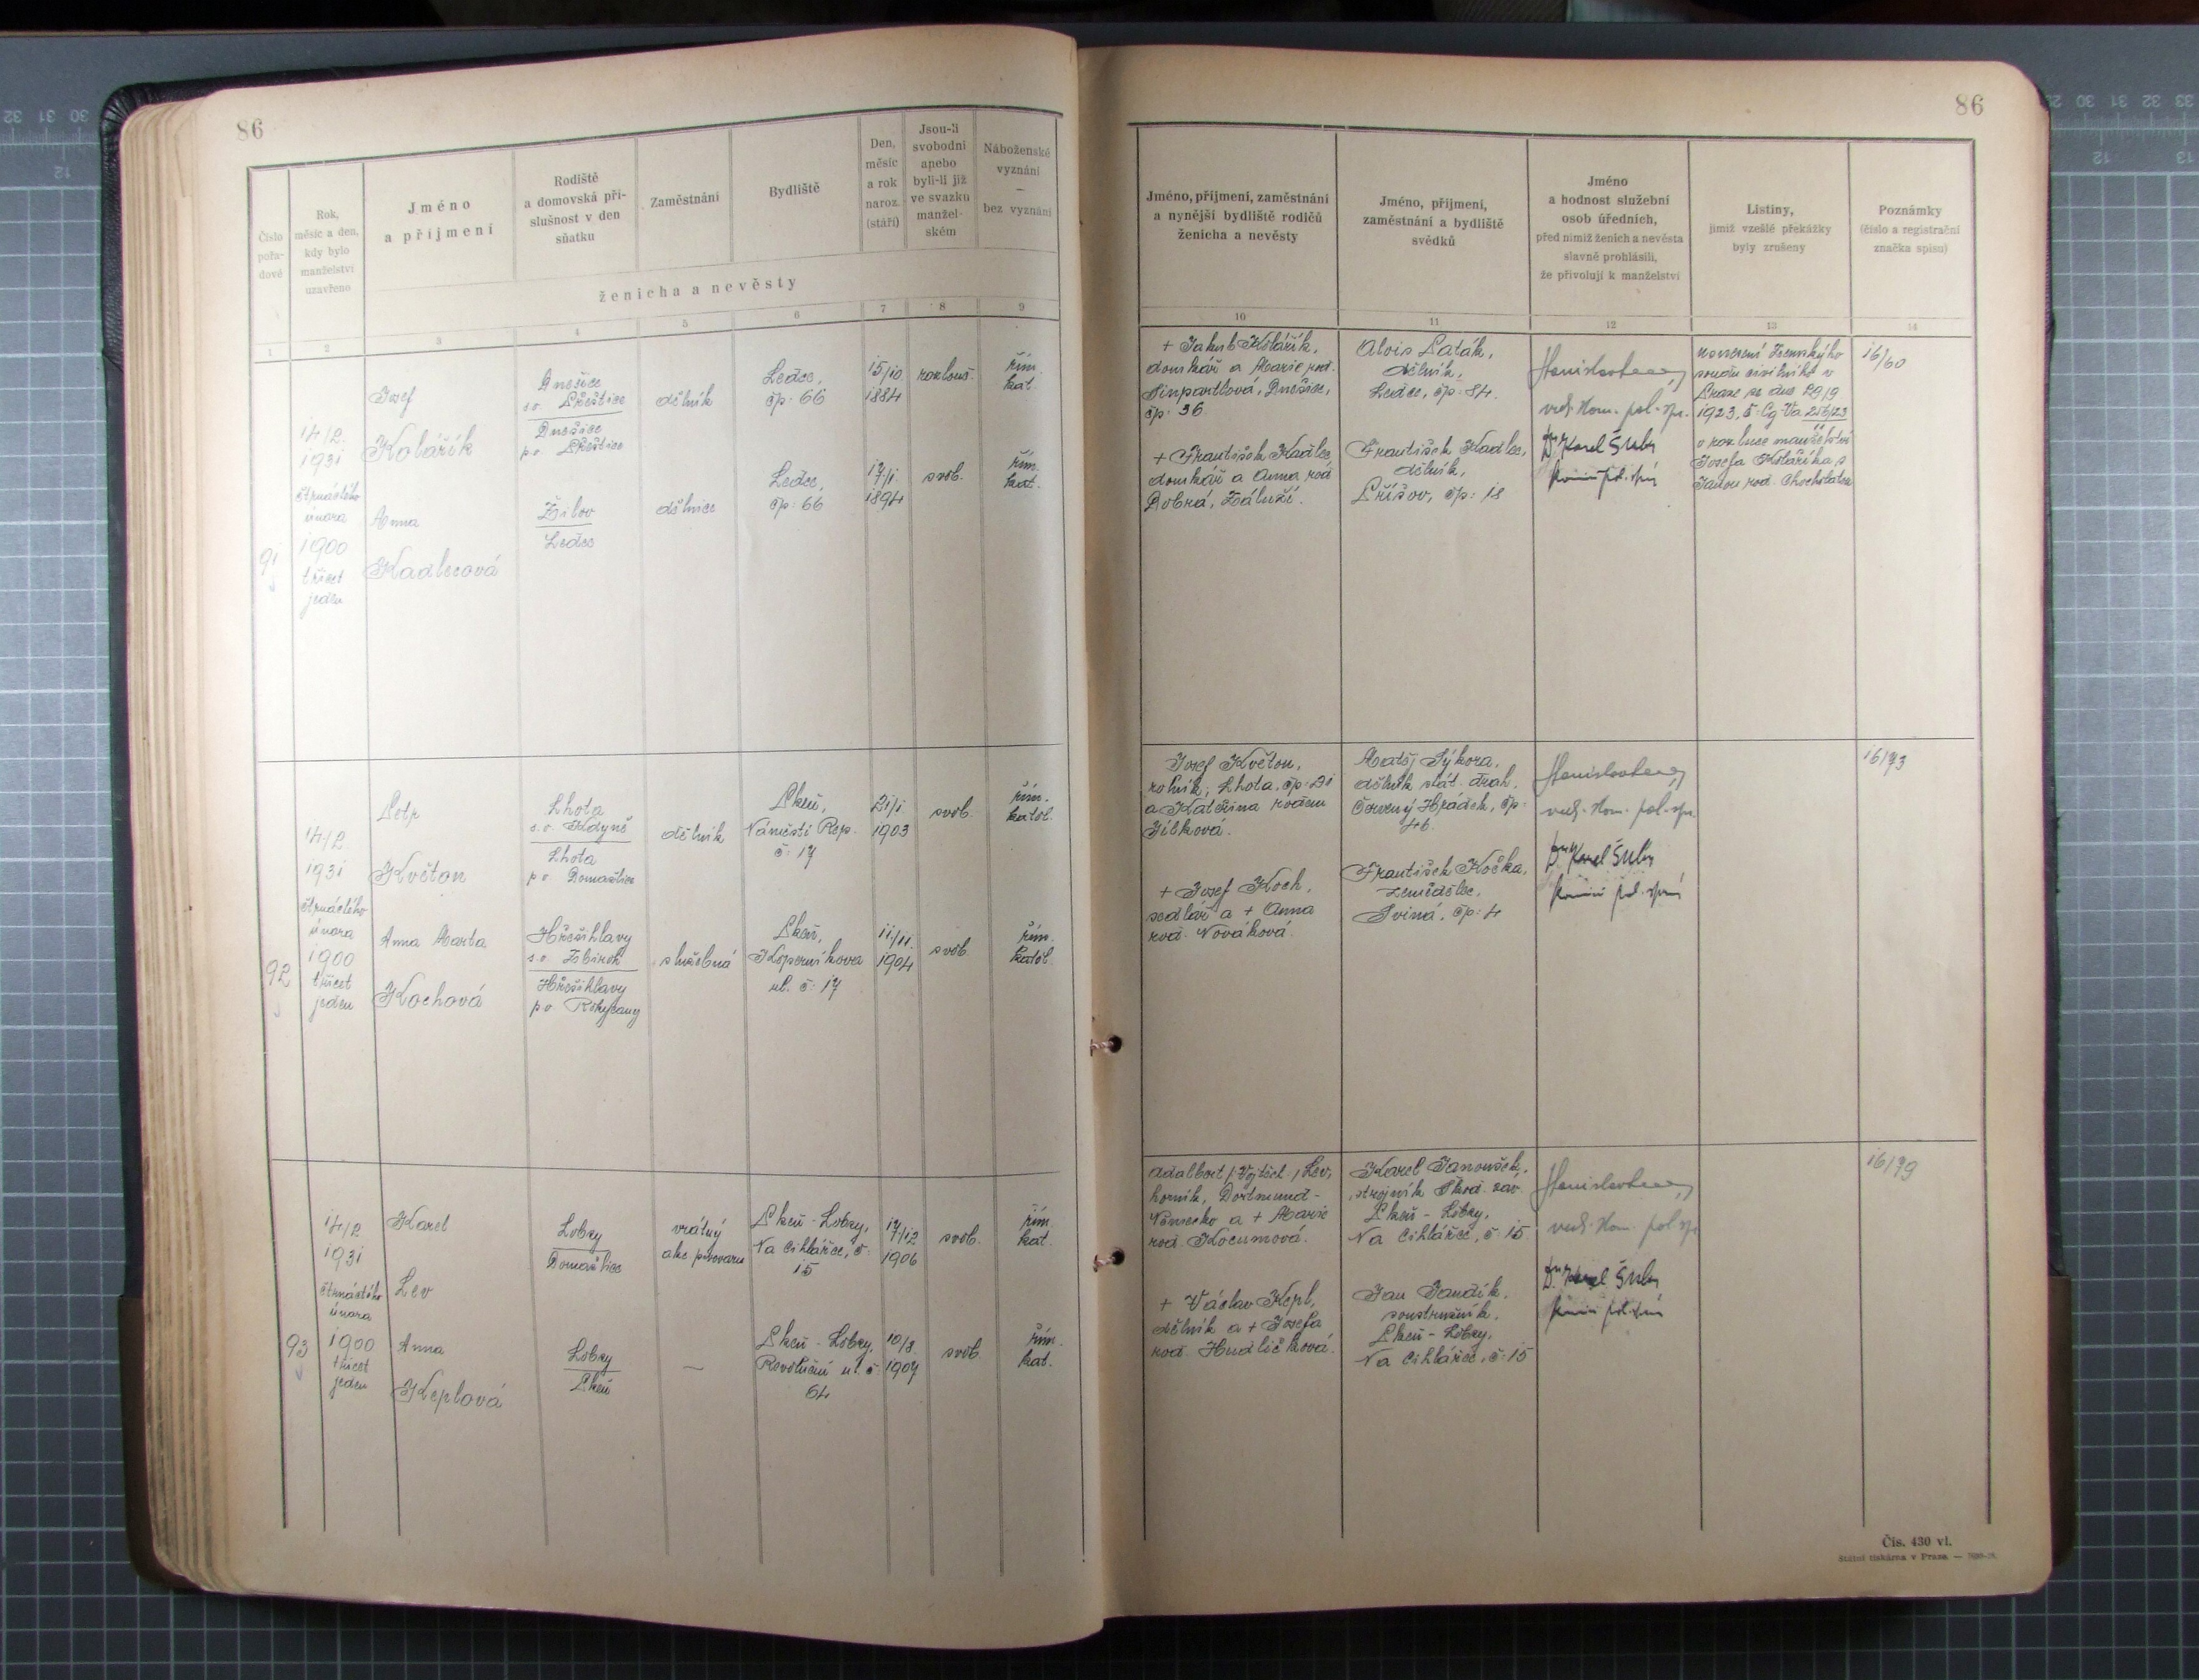 86
Číslo pořa-dové
Rok, měsíc a den, kdy bylo manželství uzavřeno
Jméno a příjmení
Rodiště a domovská pří-slušnost v den sňatku
Zaměstnání
Bydliště
Den, měsíc a rok naroz. (stáří)
Jsou-li svobodni anebo byli-li již ve svazku manžel-ském
Náboženské vyznání — bez vyznání
ženicha a nevěsty
1 2 3 4 5 6 7 8 9
91
14/2.
1931
čtrnáctého
února
1900
třicet
jeden
Josef
Kolářík
Dnešice
s.o. Přeštice
Dnešice
p.o. Přeštice
dělník
Ledce,
čp: 66
15/10.
1884
rozlouč.
řím.
kat.
Anna
Kadlecová
Žilov
Ledce
dělnice
Ledce,
čp: 66
17/1.
1894
svob.
řím.
kat.
92
14/2
1931
čtrnáctého
února
1900
třicet
jeden
Petr
Květon
Lhota
s.o. Kdyně
Lhota
p.o. Domažlice
dělník
Plzeň,
Náměstí Rep.
č: 17
21/1.
1903
svob.
řím.
katol.
Anna Marta
Kochová
Hřešihlavy
s.o. Zbiroh
Hřešihlavy
p.o. Rokycany
služebná
Plzeň,
Koperníkova
ul. č: 17
11/11.
1904
svob.
řím.
katol.
93
14/2
1931
čtrnáctého
února
1900
třicet
jeden
Karel
Lev
Lobzy
Domažlice
vrátný
akc. pivovaru
Plzeň - Lobzy,
Na Cihlářce, č:
15
17/12
1906
svob.
řím.
kat.
Anna
Keplová
Lobzy
Plzeň
—
Plzeň - Lobzy,
Revoluční ul. č:
64
10/8.
1907
svob.
řím.
kat.
86
Jméno, příjmení, zaměstnání a nynější bydliště rodičů ženicha a nevěsty
Jméno, příjmení, zaměstnání a bydliště svědků
Jméno a hodnost služební osob úředních, před nimiž ženich a nevěsta slavně prohlásili, že přivolují k manželství
Listiny, jimiž vzešlé překážky byly zrušeny
Poznámky (číslo a registrační značka spisu)
10 11 12 13 14
+ Jakub Kolářík,
domkář a Marie rod.
Dnešice,
čp: 36.
+ František Kadlec
domkář a Anna rod
Dobrá, Záluží.
Alois Paták,
dělník,
Ledce, čp: 84.
František Kadlec,
dělník,
Příšov, čp: 18
vrch. kom. pol. spr.
Dr. Karel Šulc
Zemského
soudu civilního v
Praze ze dne 29/9
1923, č: Cg Va 256/23
o rozluce manželství
Josefa Kolaříka s
Janou rod.
16/60
Josef Květon,
rolník, Lhota, čp: 21
a Kateřina rodem
Jílková.
+ Josef Koch,
sedlář a + Anna
rod. Nováková.
Matěj Sýkora,
dělník stát. drah,
Červený Hrádek, čp:
46.
František Kočka,
zemědělec,
Sviná, čp: 4
vrch. kom. pol. spr.
Dr. Karel Šulc
16/73
Adalbert /Vojtěch/ Lev,
horník, Dortmund -
Německo a + Marie
rod. Kocumová.
+ Václav Kepl,
dělník a + Josefa
rod. Hudličková.
Karel Janoušek,
strojník Škod. záv.
Plzeň - Lobzy,
Na Cihlářce, č: 15
Jan Jandík,
soustružník,
Plzeň - Lobzy,
Na Cihlářce, č: 15
vrch. kom. pol. spr.
Dr. Karel Šulc
16/79
Čís. 430 vl.
Státní tiskárna v Praze. —